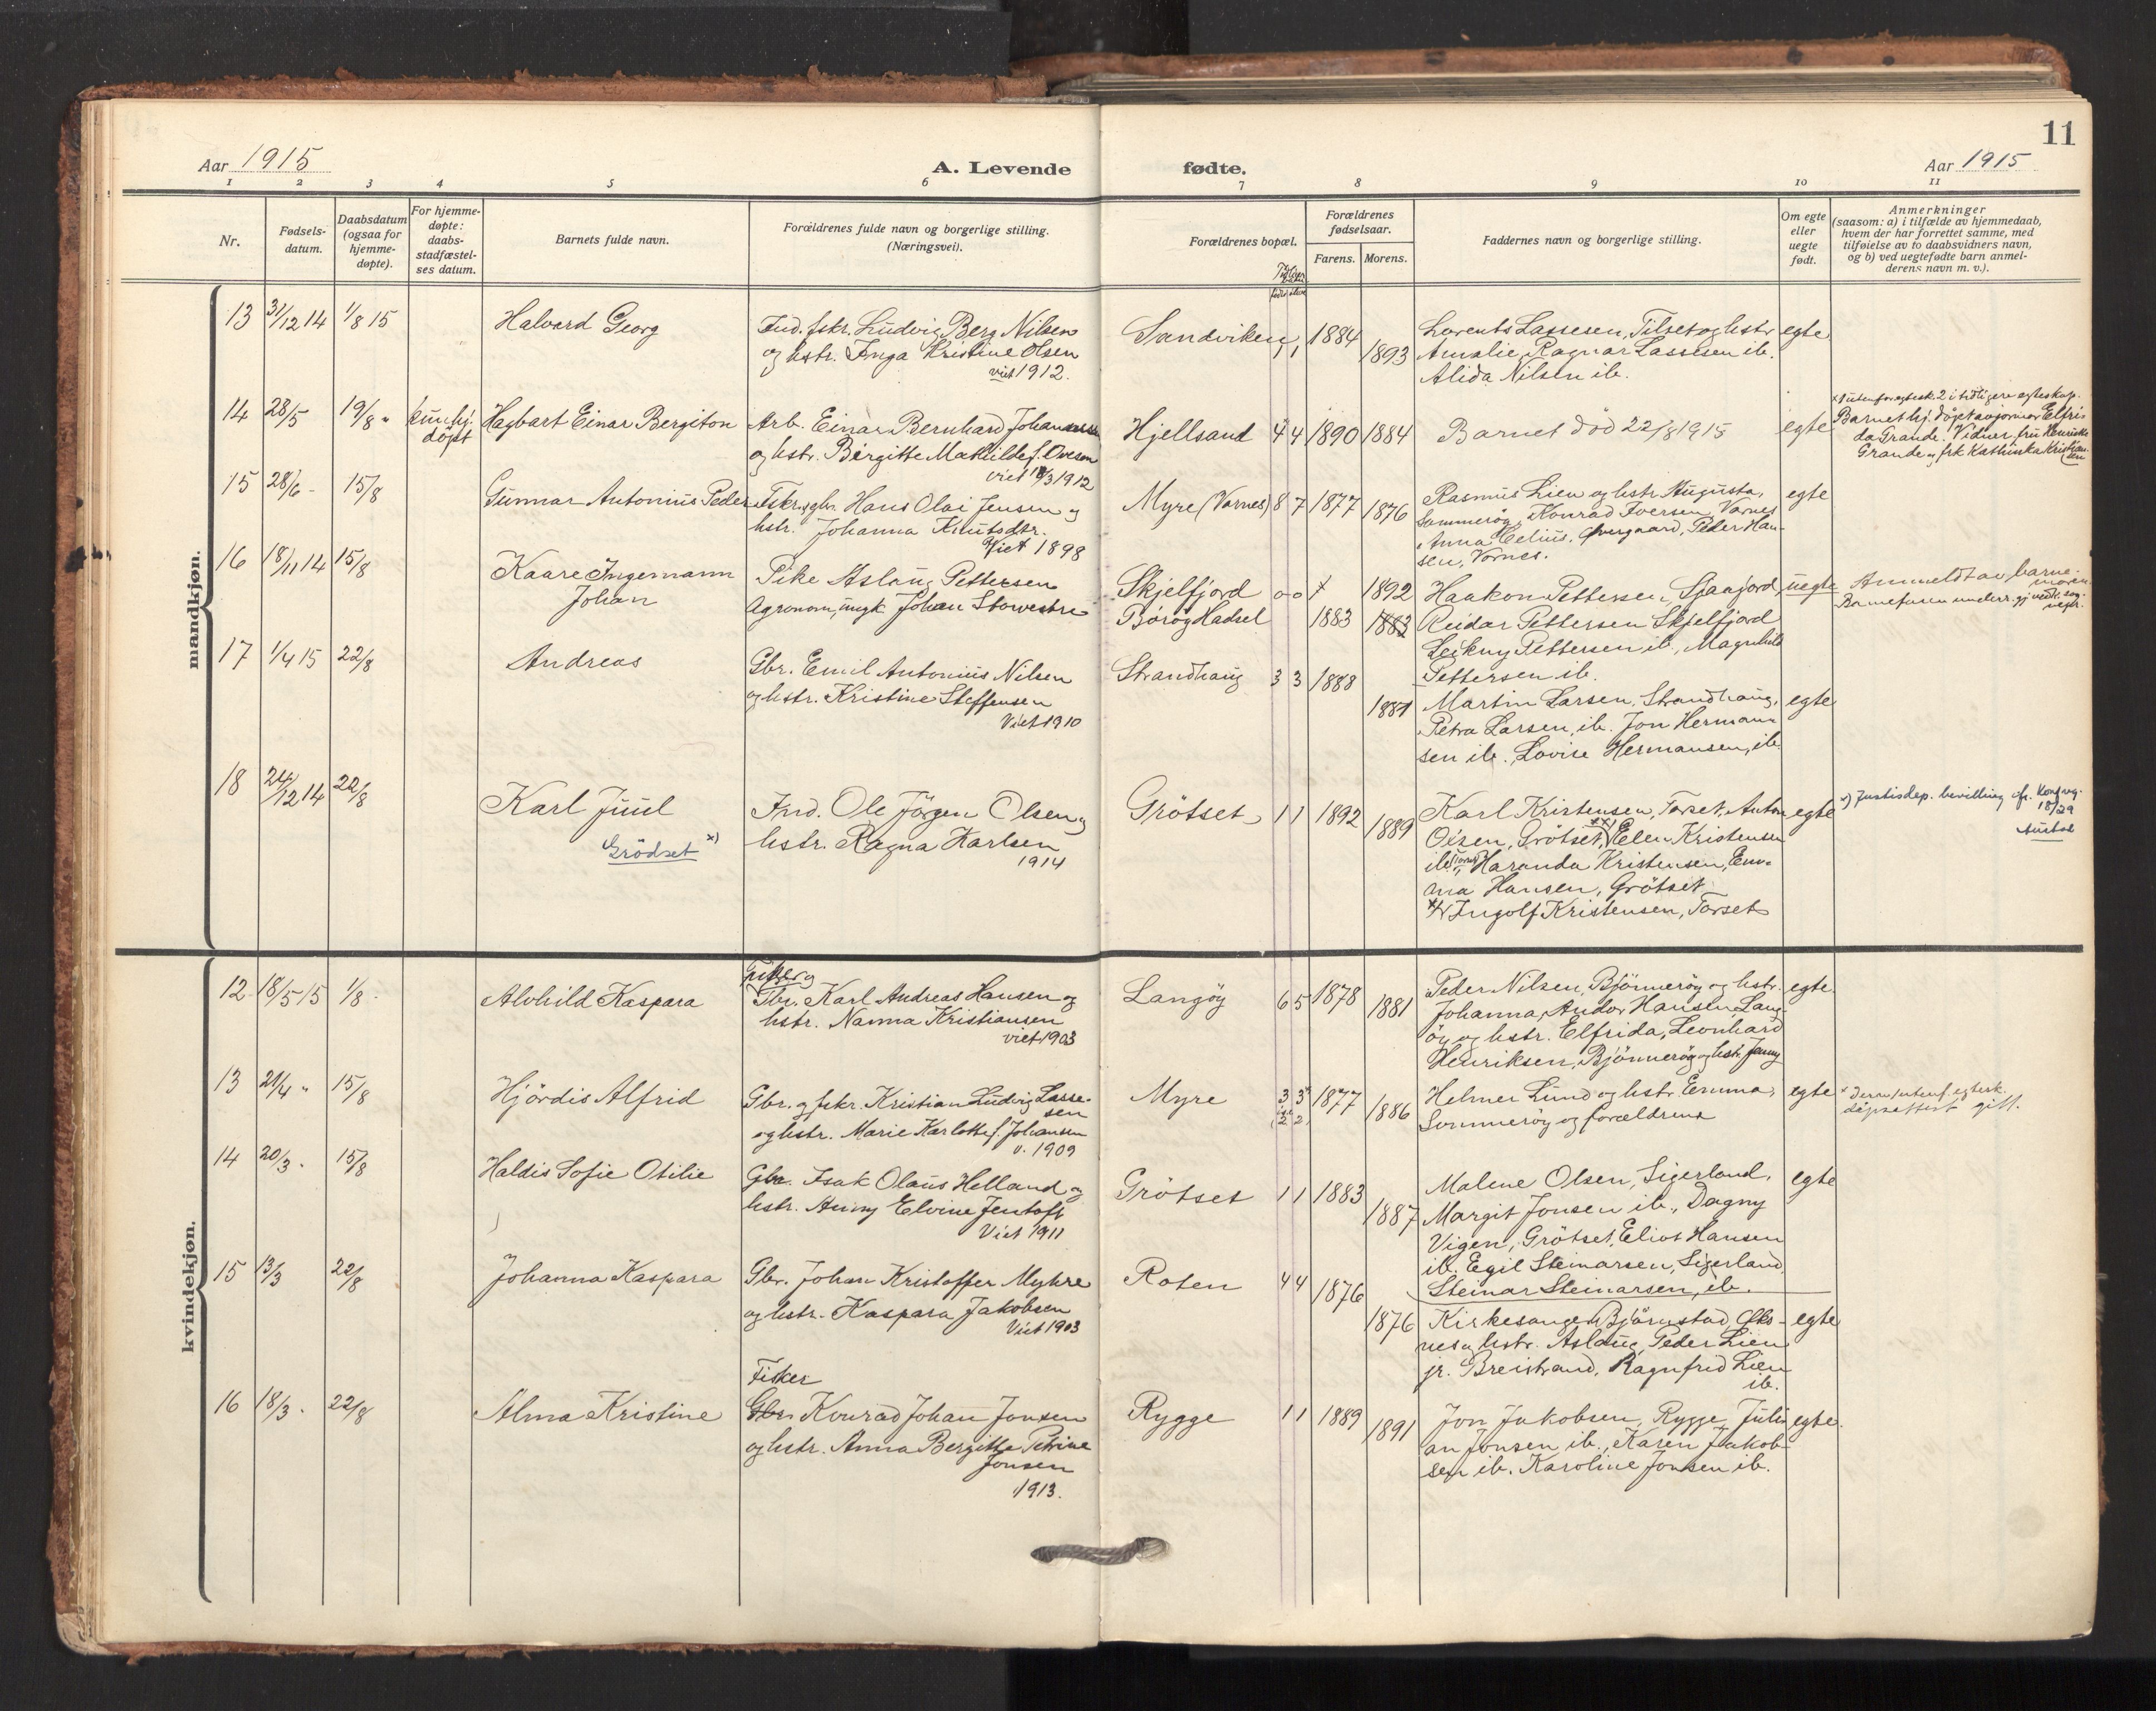 11
Aar 1915
A. Levende
fødte.
Aar 1915
1 2 3 4 5 6 7 8 9 10 11
Nr.
Fødsels-
datum.
Daabsdatum
(ogsaa for
hjemme-
døpte).
For hjemme-
døpte:
daabs-
stadfæstel-
ses datum.
Barnets fulde navn.
Forældrenes fulde navn og borgerlige stilling.
(Næringsvei).
Forældrenes bopæl.
Forældrenes
fødselsaar.
Farens. Morens.
Faddernes navn og borgerlige stilling.
Om egte
eller
uegte
født.
Anmerkninger
(saasom: a) i tilfælde av hjemmedaab,
hvem der har forrettet samme, med
tilføielse av to daabsvidners navn,
og b) ved uegtefødte barn anmel-
derens navn m. v.).
mandkjøn.
13 31/12 14 1/8 15
Halvard Georg
Ind. fskr. Ludvig Berg Nilsen
og hstr. Inga Kristine Olsen
viet 1912.
Sandviken 1 1 1884 1893
Lorents Lassesen, Tilset og hstr
Amalie, Ragnar Lassesen ib.
Alida Nilsen ib.
egte
14 28/5 19/8 "
kun hj.
døpt
Hagbart Einar Bergiton
Arb. Einar Bernhard Johansen
og hstr. Birgitte Mathilde f. Ovesen
viet 18/3 1912
Hjellsand 4 4 1890 1884
Barnet död 22/8 1915
egte
Barnet hj. döpt av jormor Elfri-
da Grande. Vidner, fru Henrikke
Grande og frk Kathinka Kristian-
sen
15 28/6 - 15/8
Gunnar Antonius Peder
Fskr. og gbr. Hans Olai Jensen og
hstr. Johanna Knutsdtr.
Viet 1898
Myre (Vornes) 8 7 1877 1876
Rasmus Lien og hstr Augusta,
Sommerøy, Konrad Iversen, Vornes
Anna Celius, Øvergaard, Peder Han-
sen, Vornes.
egte
16 18/11 14 15/8
Kaare Ingemann
Johan
Pike Aslaug Pettersen
Agronom, ungk Johan Storvestre
Skjelfjord 0 0 1892
Börøy Hadsel 1883 1883
Haakon Pettersen, Sjaafjord
Reidar Pettersen Skjelfjord
Leikny Pettersen ib., Magnhild
Pettersen ib.
uegte
Anmeldt av barne-
moren.
17 1/4 15 22/8
Andreas
Gbr. Emil Antonius Nilsen
og hstr. Kristine Steffensen
Viet 1910
Strandhaug 3 3 1888 1887
Martin Larsen, Strandhaug,
Petra Larsen, ib. Jon Herman-
sen ib. Lovise Hermansen, ib.
egte
18 24/12 14 22/8
Karl Juul
Grödset x)
Ind. Ole Jörgen Olsen og
hstr. Ragna Karlsen
1914
Grötset 1 1 1892 1889
Karl Kristensen, Torset, Anton
Olsen, Grötset, Elen Kristensen
ib. Haranda Kristensen, Em-
ma Hansen, Grötset
Ingolf Kristensen, Torset
egte
x) Justisdep. bevilling
18/29
kvindekjøn.
12 18/5 15 1/8 -
Alvhild Kaspara
Fisker og
Gbr. Karl Andreas Hansen og
hstr. Nanna Kristiansen
viet 1903
Langöy 6 5 1878 1881
Peder Nilsen, Björnerøy og hstr.
Johanna, Andor Hansen, Lang-
öy og hstr. Elfrida, Leonhard
Henriksen, Björnerøy og hstr. Jenny
egte.
13 21/4 " 15/8
Hjördis Alfrid
Gbr. og fskr. Kristian Ludvig Lasse-
sen
og hstr. Marie Karlotte f. Johansen
v. 1909
Myre 3 3 1877 1886
Helmer Lund og hstr. Emma,
Sommerøy og forældrene
egte
14 20/3 . 15/8
Haldis Sofie Otilie
Gbr. Isak Olaus Helland og
hstr. Anny Elvine Jentoft
Viet 1911
Grötset 1 1 1883 1887
Malene Olsen, Sigerland,
Margit Jonsen ib., Dagny
Vigen, Grötset, Eliot Hansen
ib. Egil Steinarsen, Sigerland
Steinar Steinarsen, ib.
egte
15 13/3 22/8
Johanna Kaspara
Gbr. Johan Kristoffer Myhre
og hstr. Kaspara Jakobsen
Viet 1903
Roten 4 4 1876 1876
Kirkesanger Björnstad, Øks-
nes og hstr. Aslaug, Peder Lien
jr. Breistrand, Ragnfrid Lien
ib.
egte
16 18/3 . 22/8
Alma Kristine
Fisker
Gbr. Konrad Johan Jonsen
og hstr. Anna Bergitte Petrine
Jonsen
1913.
Rygge 1 1 1889 1891
Jon Jakobsen, Rygge, Juli-
an Jonsen ib., Karen Jakob-
sen ib. Karoline Jonsen ib.
egte.